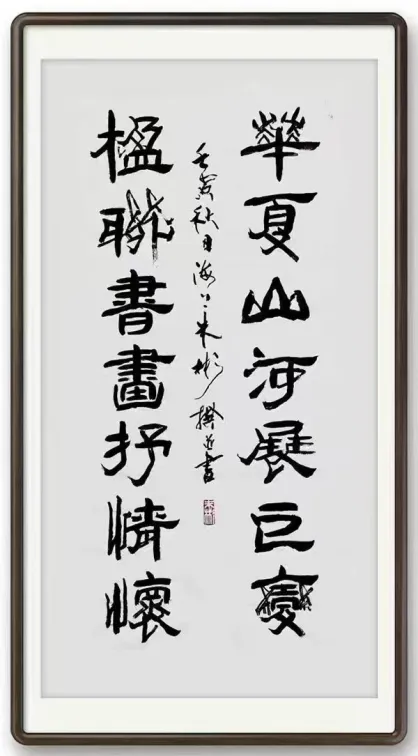 華夏山河展巨變
壬寅秋日海上朱彬撰並書
楹聯書畫抒情懷